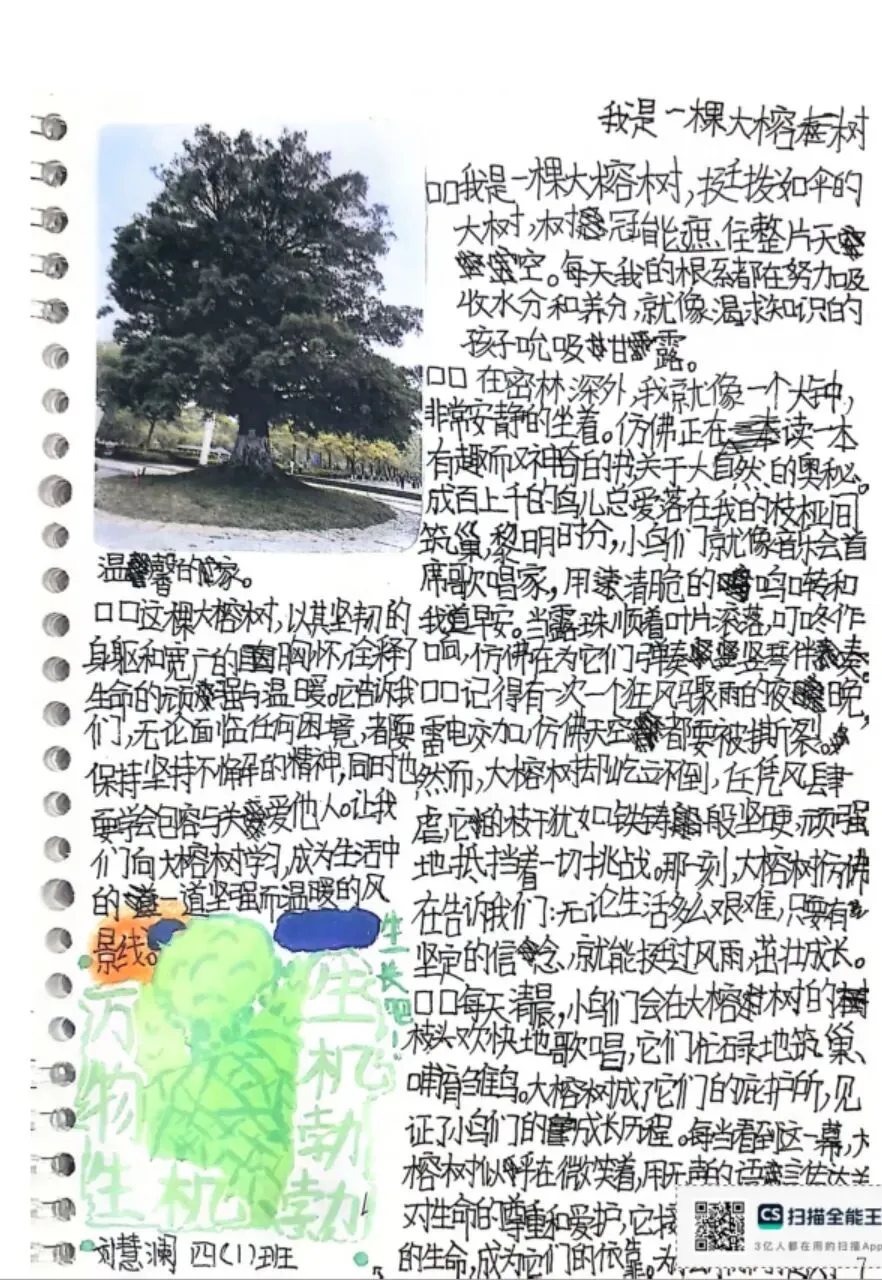 我是一棵大榕树
我是一棵大榕树，挺拨如伞的
大树，树冠能遮住整片天
空。每天我的根系都在努力吸
收水分和养分，就像渴求知识的
孩子吮吸甘露。
在密林深处，我就像一个大钟，
非常安静的坐着。仿佛正在读一本
有趣而又神奇的书关于大自然的奥秘。
成百上千的鸟儿总爱落在我的枝桠间
筑巢，黎明时分，小鸟们就像音乐会首
席歌唱家，用清脆的鸣啭和
我道早安。当露珠顺着叶片滚落，叮咚作
响，仿佛在为它们弹奏竖琴伴奏。
记得有一次一个狂风骤雨的夜晚，
雷电交加，仿佛天空都要被撕裂。
然而，大榕树却屹立不到，任凭风肆
虐，它的枝干犹如铁铸般坚硬，顽强
地抵挡着一切挑战。那一刻，大榕树仿佛
在告诉我们：无论生活多么艰难，只要有
坚定的信念，就能挺过风雨，茁壮成长。
每天清晨，小鸟们会在大榕树的
枝头欢快地歌唱，它们忙碌地筑巢、
哺育雏鸟。大榕树成了它们的庇护所，见
证了小鸟们的成长历程。每当看到这一幕，大
榕树似乎在微笑着，用无声的语言传达着
对生命的尊重和爱护，它
的生命，成为它们的依靠。为
温馨的家。
这棵大榕树，以其坚韧的
身躯和宽广的胸怀，诠释了
生命的顽强与温暖。它告诉我
们，无论面临任何困境，都要
保持坚持不懈的精神，同时也
要学会包容与关爱他人。让我
们向大榕树学习，成为生活中
的一道坚强而温暖的风
景线。
生长吧！
万物生机
生机勃勃
刘慧澜 四（1）班
CS 扫描全能王
3亿人都在用的扫描App
7